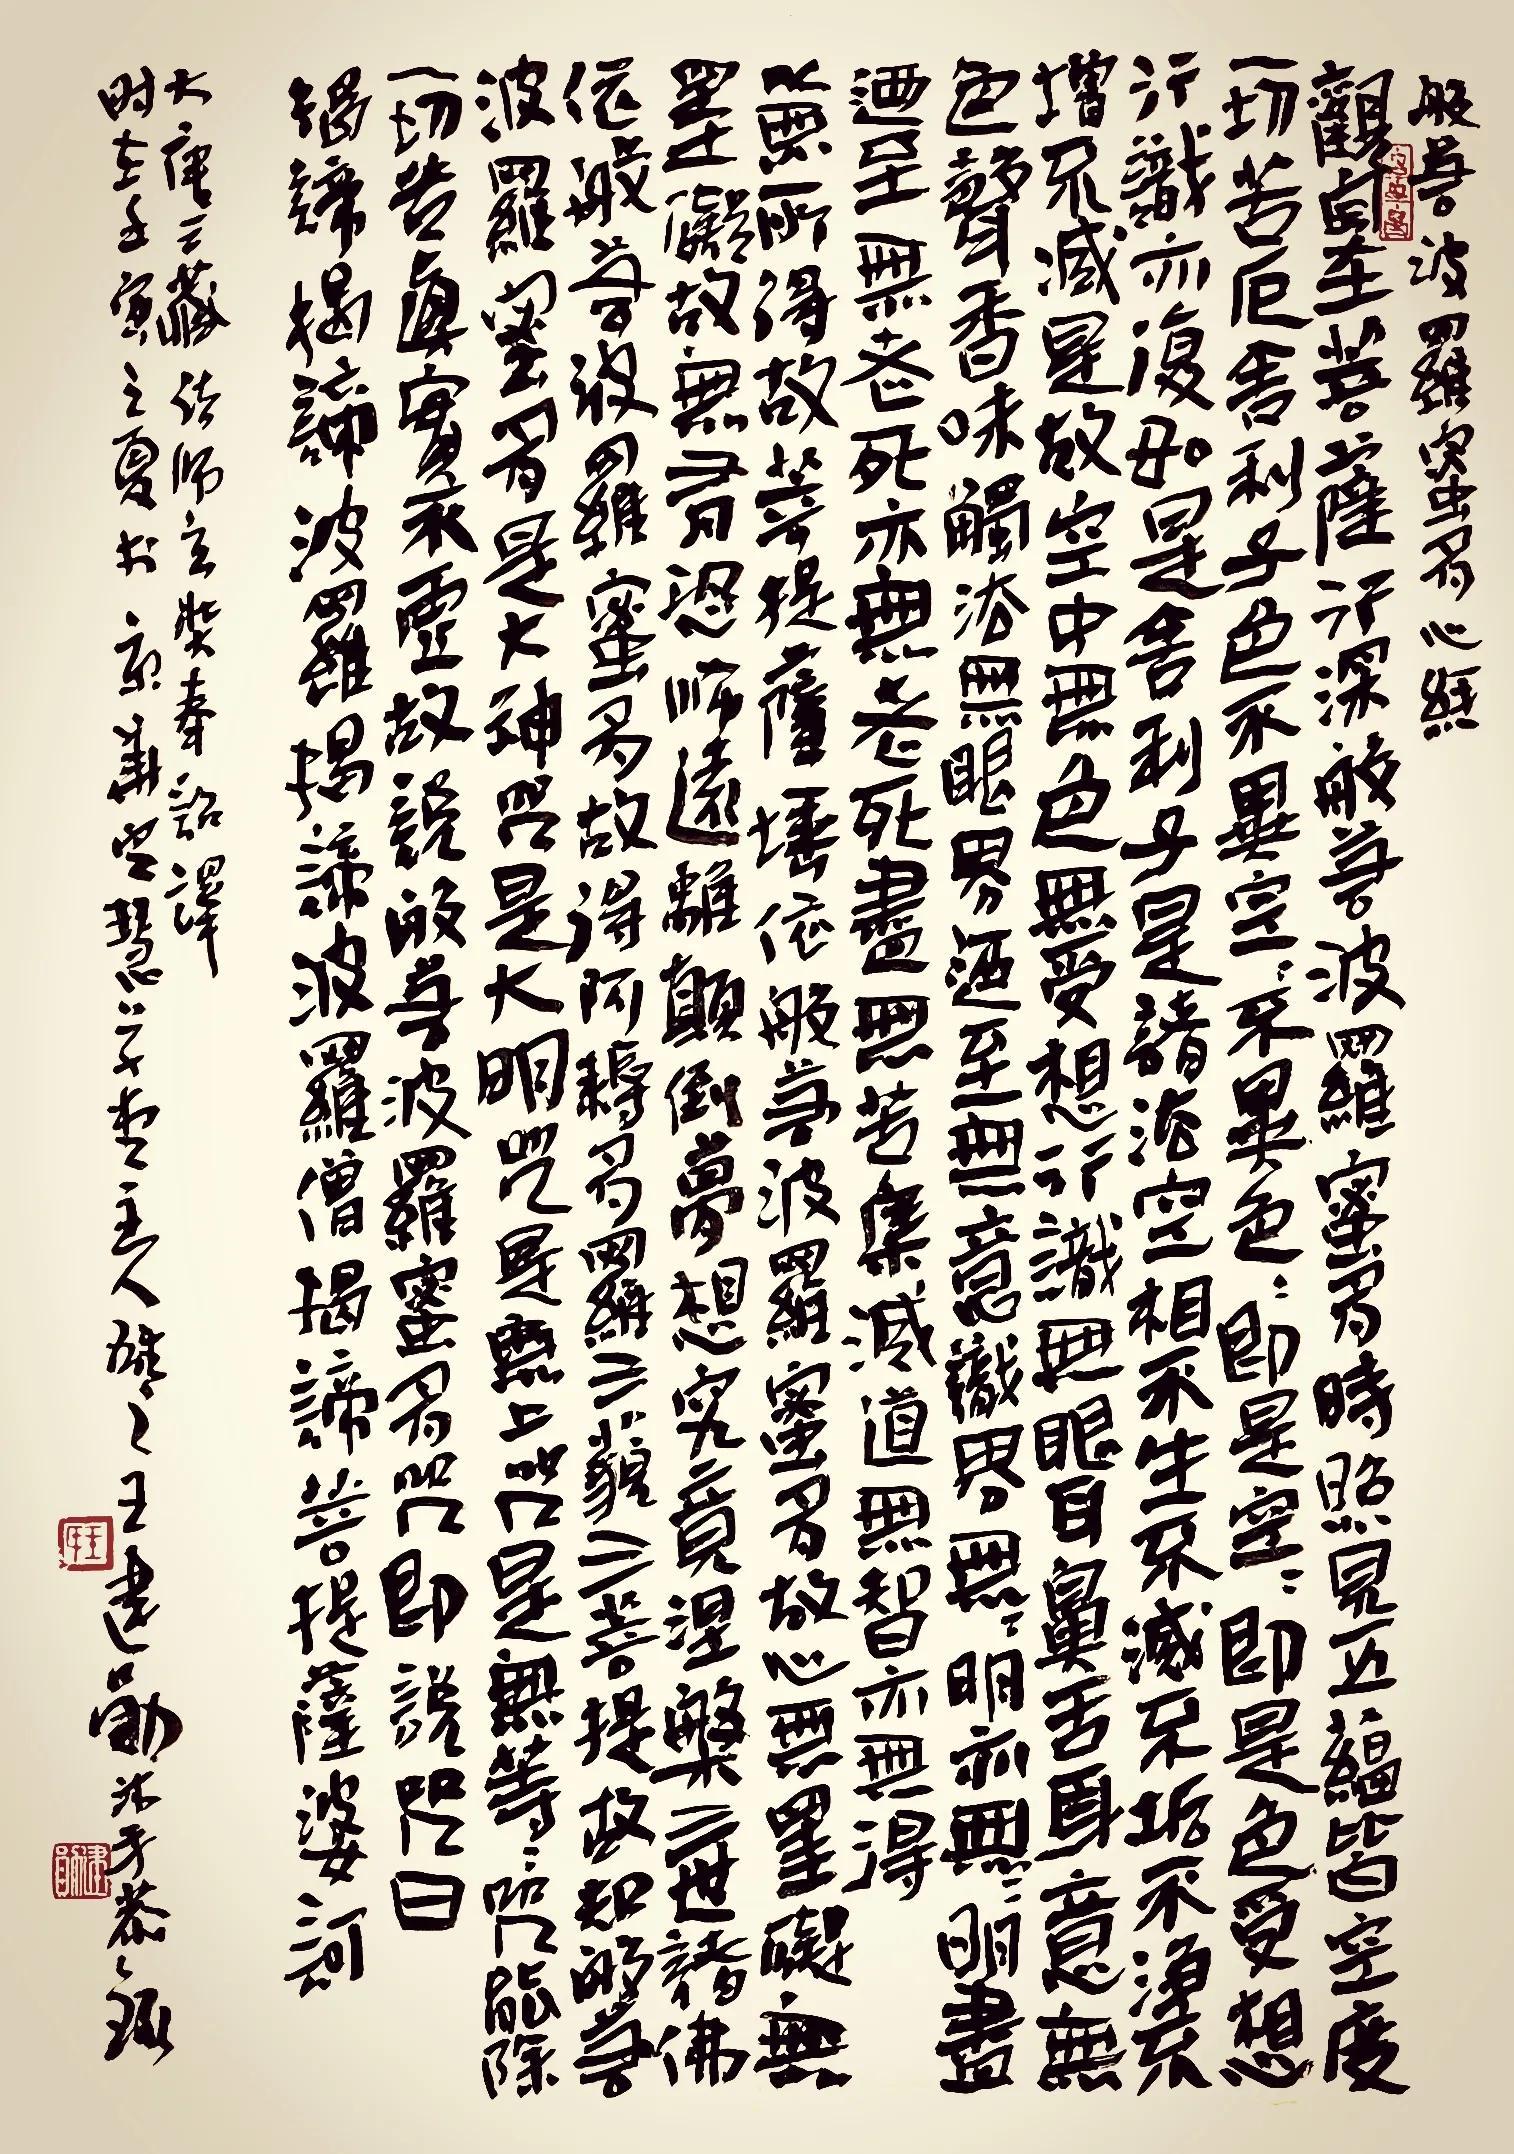 般若波羅蜜多心經
觀自在菩薩行深般若波羅蜜多時照見五蘊皆空度
一切苦厄舍利子色不異空〻不異色〻即是空〻即是色受想
行識亦復如是舍利子是諸法空相不生不滅不垢不淨不
增不減是故空中無色無受想行識無眼耳鼻舌身意無
色聲香味觸法無眼界迺至無意識界無〻明亦無〻明盡
迺至無老死亦無老死盡無苦集滅道無智亦無得
以無所得故菩提薩埵依般若波羅蜜多故心無罣礙無
罣礙故無有恐怖遠離顛倒夢想究竟涅槃三世諸佛
依般若波羅蜜多故得阿耨多羅三藐三菩提故知般若
波羅蜜多是大神咒是大明咒是無上咒是無等〻咒能除
一切苦真實不虛故說般若波羅蜜多咒即說咒曰
揭諦揭諦波羅揭諦波羅僧揭諦菩提薩婆訶
大唐三藏法師玄奘奉詔譯
时在壬寅之夏於京華空慧草堂主人王建勛沐手恭〻錄